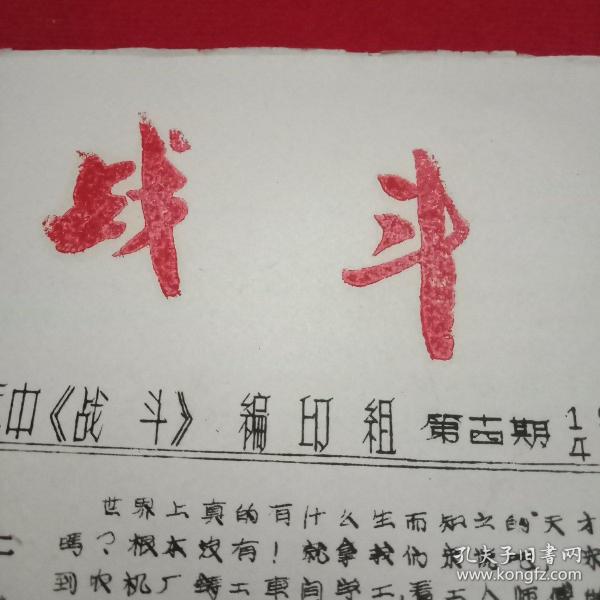 战斗
中《战斗》编印组 第十四期 1
4
世界上真的有什么生而知之的"天才
吗？根本没有！就拿我们
到农机厂 工车间学工，看 工人师傅
孔夫子旧书网
www.kongfz.com